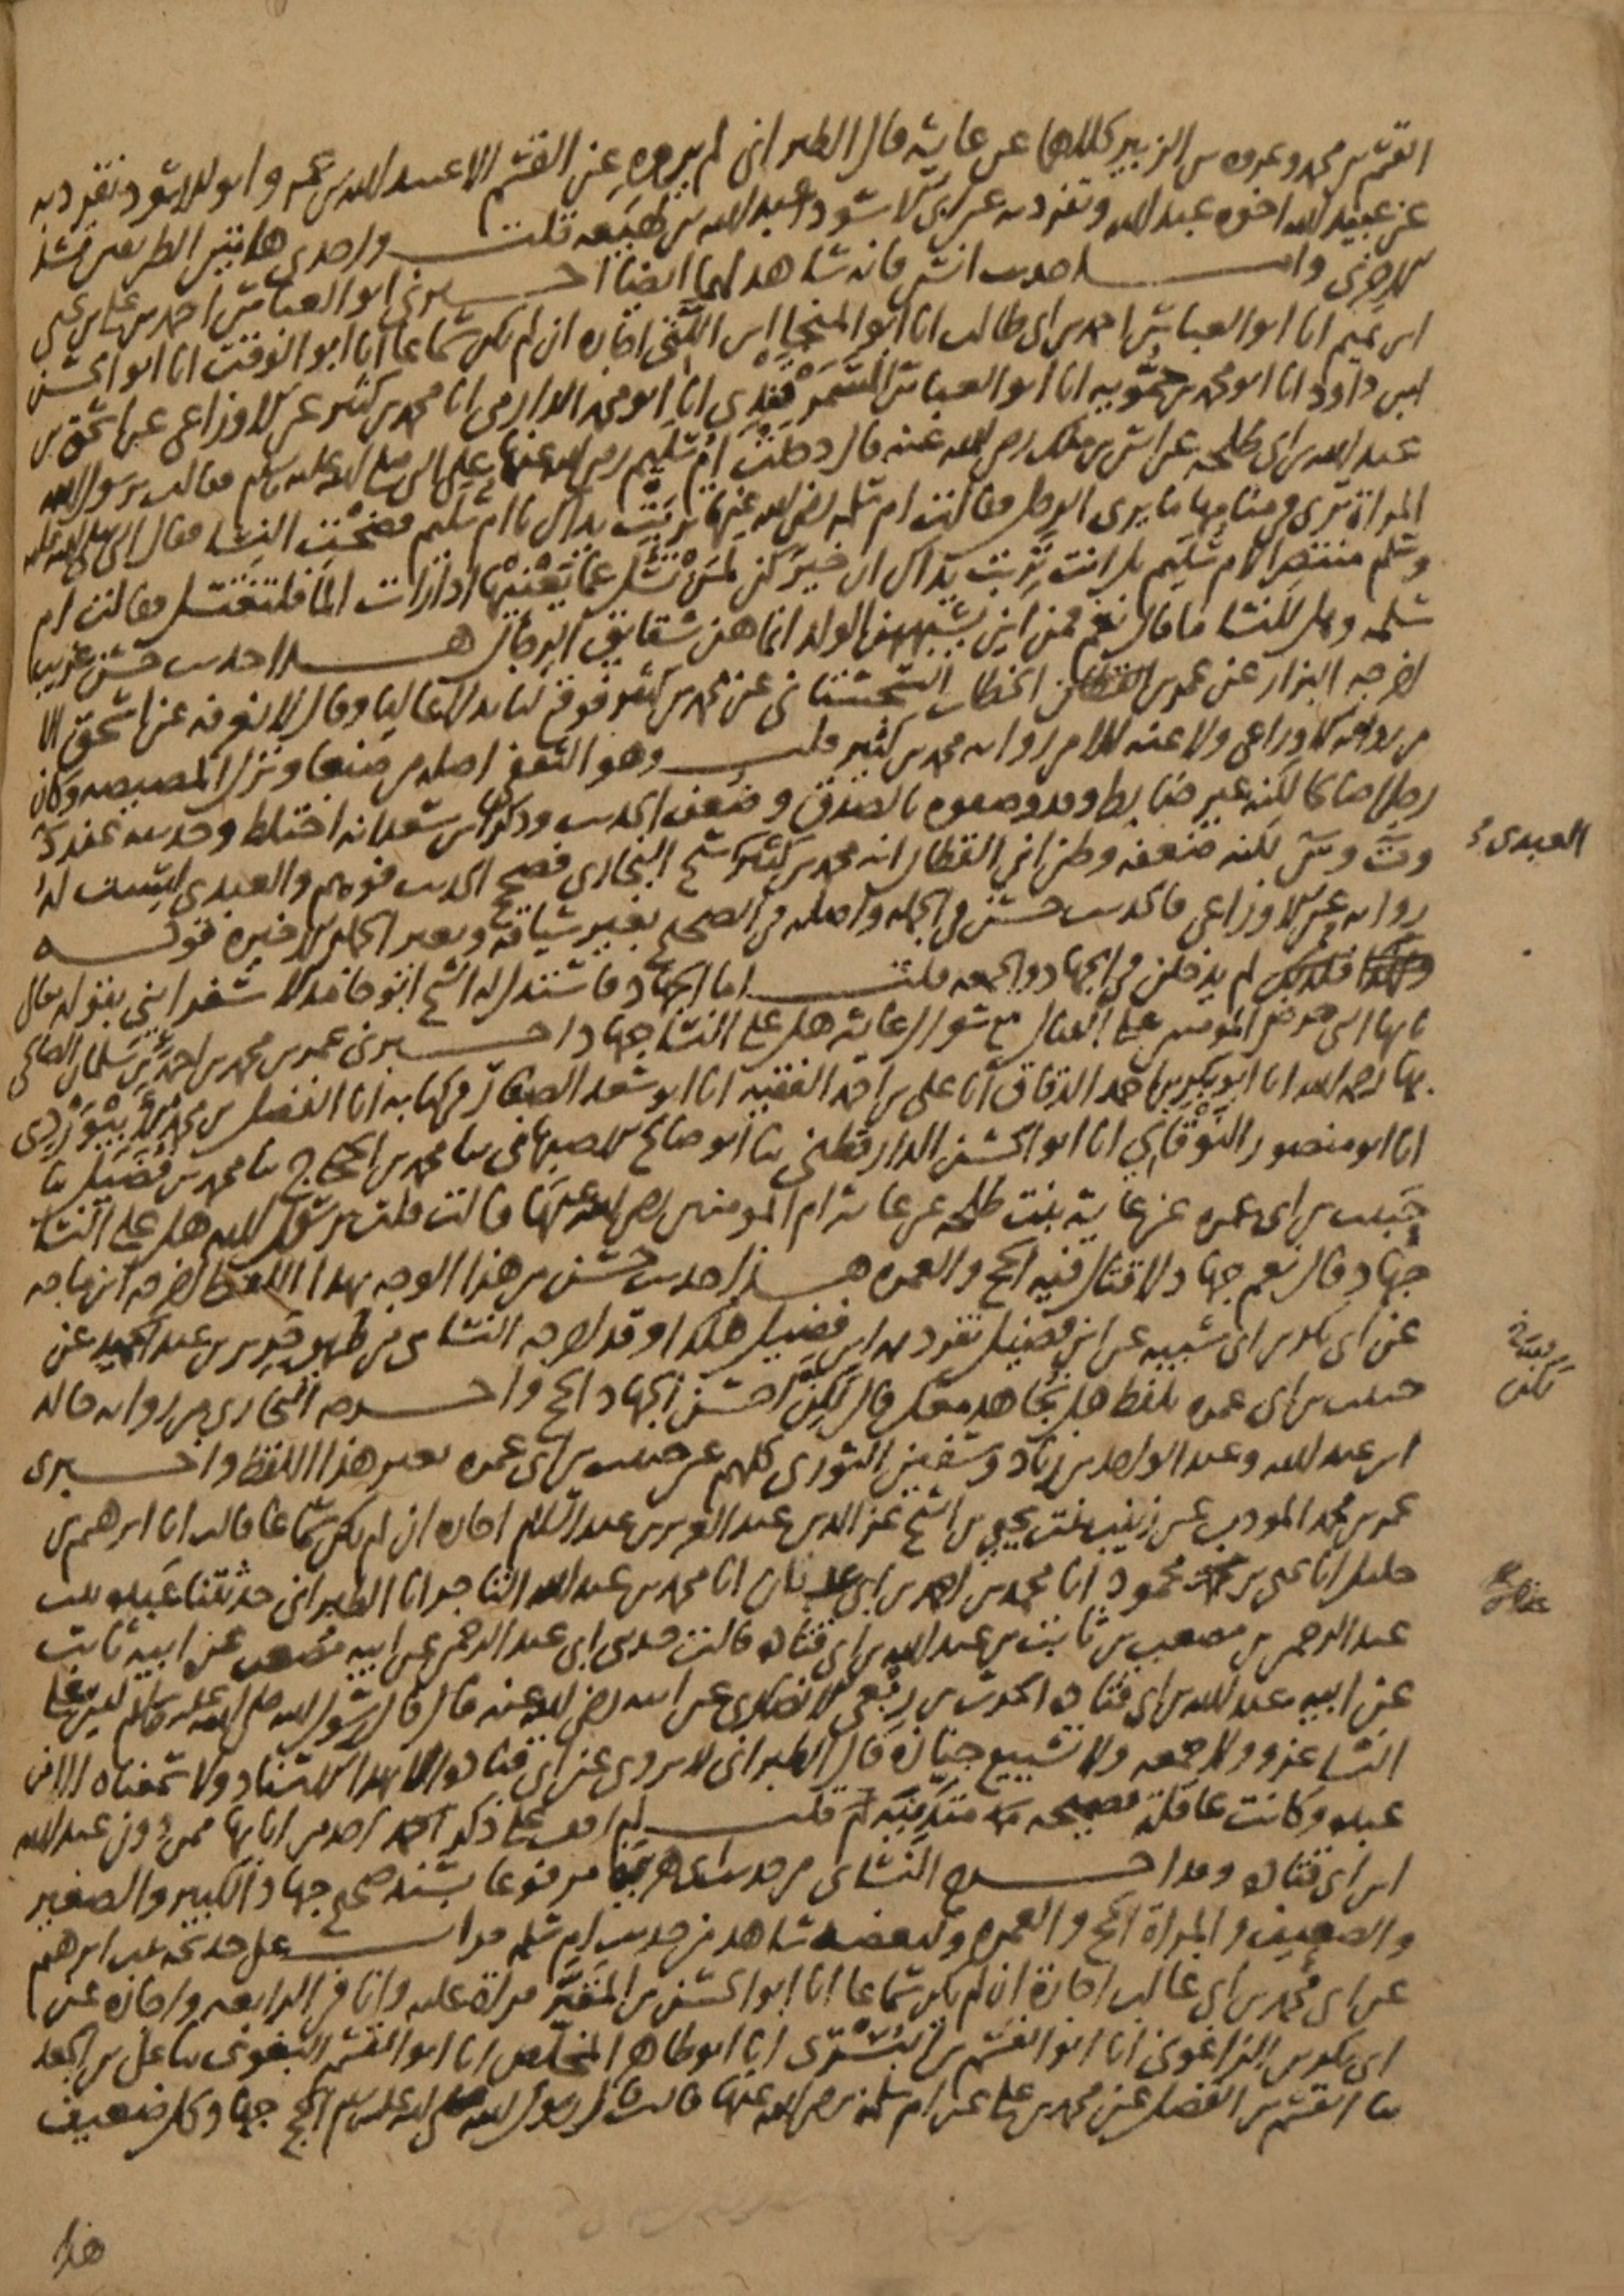 القسم بن محمد وعروه بن الزبير كلاهما عن عايشه قال الطبراني لم يروه عن القسم الا عبد الله بن عمر وابو الاسود تفرد به
عن عبيد الله اخوه عبد الله وتفرد به عن ابي الاسود عبد الله بن لهيعه قلت واحدى هاتين الطريقين تشد
الاخرى واما حديث انس فانه شاهد لهما ايضا اخبرني ابو العباس احمد بن علي بن يحيى
ابن تميم انا ابو العباس احمد بن ابي طالب انا ابو المنجا ابن اللتي اجازه ان لم يكن سماعا انا ابو الوقت انا ابو الحسن
ابن داود انا ابو محمد بن حمويه انا ابو العباس السمرقندي انا ابو محمد الدارمي انا محمد بن كثير عن الاوزاعي عن اسحق بن
عبد الله بن ابي طلحه عن انس بن ملك رضي الله عنه قال دخلت ام سليم رضي الله عنها على النبي صلى الله عليه وسلم فقالت يرسول الله
المراة ترى في منامها ما يرى الرجل فقالت ام سلمه رضي الله عنها تربت يداك يا ام سليم فضحت النسا فقال النبي صلى الله عليه
وسلم منتصرا لام سليم بل انت تربت يداك ان خيركن لمن تسل عما يعنيها اذا رات الما فلتغتسل فقالت ام
سلمه وهل للنسا ما قال نعم فمن اين يشبههن الولد انما هن شقايق الرجال هذا حديث حسن غريب
اخرجه البزار عن عمر بن الخطاب السجستاني عن محمد بن كثير فوقع لنا بدلا عاليا وقال لا نعرفه عن اسحق الا
من رواية الاوزاعي ولا عنه الا من رواية محمد بن كثير قلت وهو الثقفي اصله من صنعا ونزل المصيصه وكان
رجلا صالحا لكنه غير ضابط وقد وصفوه بالصدق وضعف الحديث وذكر ابن سعد انه اختلط وحديثه عند
د ت وس لكنه ضعفه وظن ابن القطان انه محمد بن كثير شيخ البخاري فصحح الحديث فوهم والعبدي ليست له
العبدي
رواية عن الاوزاعي فالحديث حسن في الجمله واصله في الصحيح بغير سياقه وبغير الجمله الاخيره قوله
ولهذا لم يدخلن في الجهاد والجمعه قلت اما الجهاد فاستدل له الشيخ ابو حامد الاسفرايني بقوله تعالى
يايها النبي حرض المومنين على القتال مع سوال عايشه هل على النسا جهاد اخبرني عمر بن محمد بن احمد بن سلمان الصالحي
بها رحمه الله انا ابو بكر بن احمد الدقاق انا علي بن احمد الفقيه انا ابو سعد الصفار في كتابه انا الفضل بن محمد الابيوردي
انا ابو منصور النوقاني انا ابو الحسن الدارقطني ثنا ابو صالح الاصبهاني ثنا محمد بن الحجاج ثنا محمد بن فضيل ثنا
حبيب بن ابي عمره عن عايشة بنت طلحه عن عايشه ام المومنين رضي الله عنها قالت قلت يرسول الله هل على النسا
جهاد قال نعم جهاد لا قتال فيه الحج والعمره هذا حديث حسن من هذا الوجه بهذا اللفظ اخرجه ابن ماجه
عن ابي بكر بن ابي شيبه عن ابن فضيل تفرد به ابن فضيل هكذا وقد اخرجه النسائي من طريق جرير بن عبد الحميد عن
حبيب بن ابي عمره بلفظ هل نجاهد معك قال لكن احسن الجهاد الحج واخرجه البخاري من رواية خالد
لكن
ابن عبد الله وعبد الواحد بن زياد وسفين الثوري كلهم عن حبيب بن ابي عمره بغير هذا اللفظ واخبرني
عمر بن محمد المودب عن زينب بنت يحيى بن الشيخ عز الدين عبد العزيز بن عبد السلام اجازه ان لم يكن سماعا قالت انا ابرهيم بن
خليل انا يحيى بن محمود انا محمد بن احمد بن ابي عدنان انا محمد بن عبد الله التاجر انا الطبراني حدثتنا عبده بنت
عبد الرحمن بن مصعب بن ثابت بن عبد الله بن ابي قتاده قالت حدثني ابي عبد الرحمن عن ابيه مصعب عن ابيه ثابت
عن ابيه عبد الله بن ابي قتاده الحرث بن ربعي الانصاري عن ابيه رضي الله عنه قال قال رسول الله صلى الله عليه وسلم ليس على
النسا غزو ولا جمعه ولا تشييع جنازة قال الطبراني لا يروى عن ابي قتاده الا بهذا الاسناد ولا سمعناه الا من
عبده وكانت عاقلة فصيحه متدينه قلت لم اقف على ذكر احد من ابايها ممن دون عبد الله
ابن ابي قتاده وقد اخرج النسائي من حديث ابي هريره مرفوعا بسند صحيح جهاد الكبير والصغير
والضعيف والمراة الحج والعمره ولبعضه شاهد من حديث ام سلمه قرات على خديجه بنت ابرهيم
عن ابي محمد بن ابي غالب اجازة ان لم يكن سماعا انا ابو الحسن بن المقير قراة عليه وانا في الرابعه واجازه عن
ابي بكر بن الزاغوني انا ابو القسم بن البسري انا ابو طاهر المخلص انا ابو القسم البغوي ثنا علي بن الجعد
ثنا القسم بن الفضل عن محمد بن علي عن ام سلمه رضي الله عنها قالت قال رسول الله صلى الله عليه وسلم الحج جهاد كل ضعيف
هذا